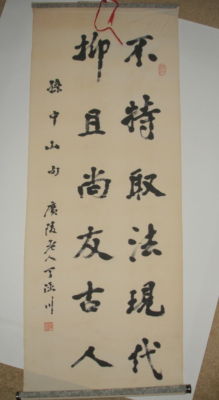 不特取法現代
抑且尚友古人
孫中山句 廣陵老人丁源川